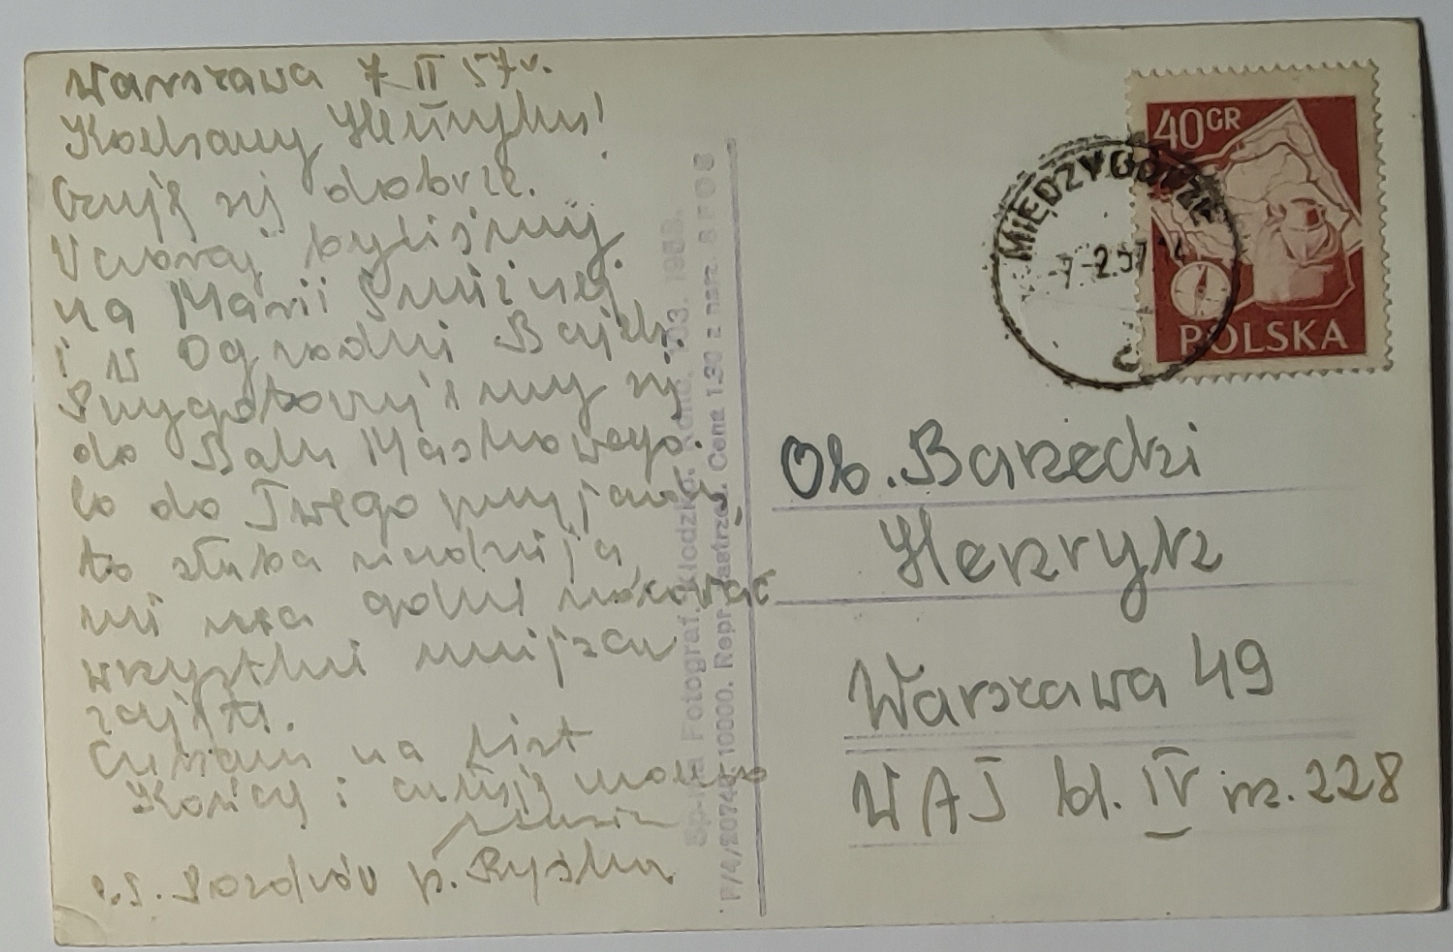 Warszawa 7 II 57r.
Kochany Heńryku!
Czuję się dobrze.
Wczoraj byliśmy
na Marii Śnieżnej
i w Ogrodni Bajek.
Przygotowujemy się
do Balu Maskowego.
Co do Twego przyjazdu
to
mi
wszystkie miejsca
zajęte.
Czekam na list
Kończę i całuję mocno
P.S. Pozdrów p. Ryśka
Sp-nia Fotograf. Kłodzko.
P/4/2074 10000. Repr. zastrzeż. Cena 1.30 z narz. SFOS
40GR
POLSKA
MIĘDZYGÓRZE
7-2.57.
Ob. Barzecki
Henryk
Warszawa 49
WAJ bl. IV m. 228